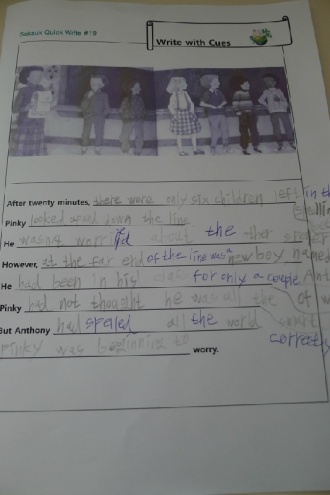 Season Quick Write #19
Write with Cues
After twenty minutes, there were only six children left in the
Pinky looked down the line
He wasn't worried about the other
However, at the far end of the line was a new boy named
He had been in his class for only a couple
Pinky had not thought he was all the
But Anthony had spelled all the world
correctly
Pinky was beginning to worry.